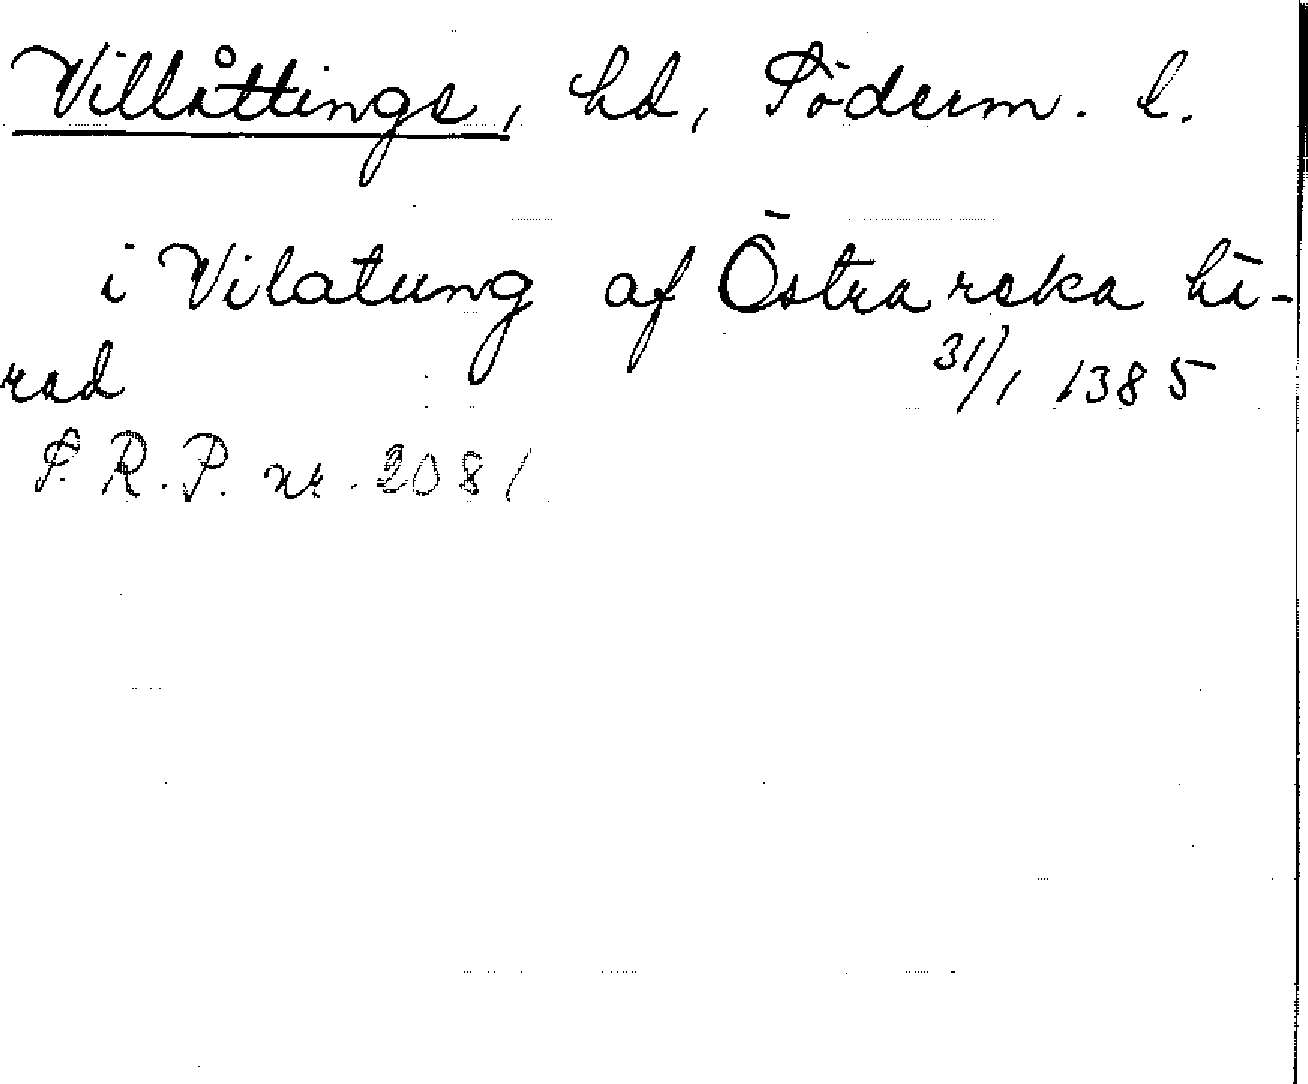 Villåttings, hd, Söderm. l.
i Vilatung af Östra rska hä-
rad 31/1 1385
S. R. P. nr. 2081